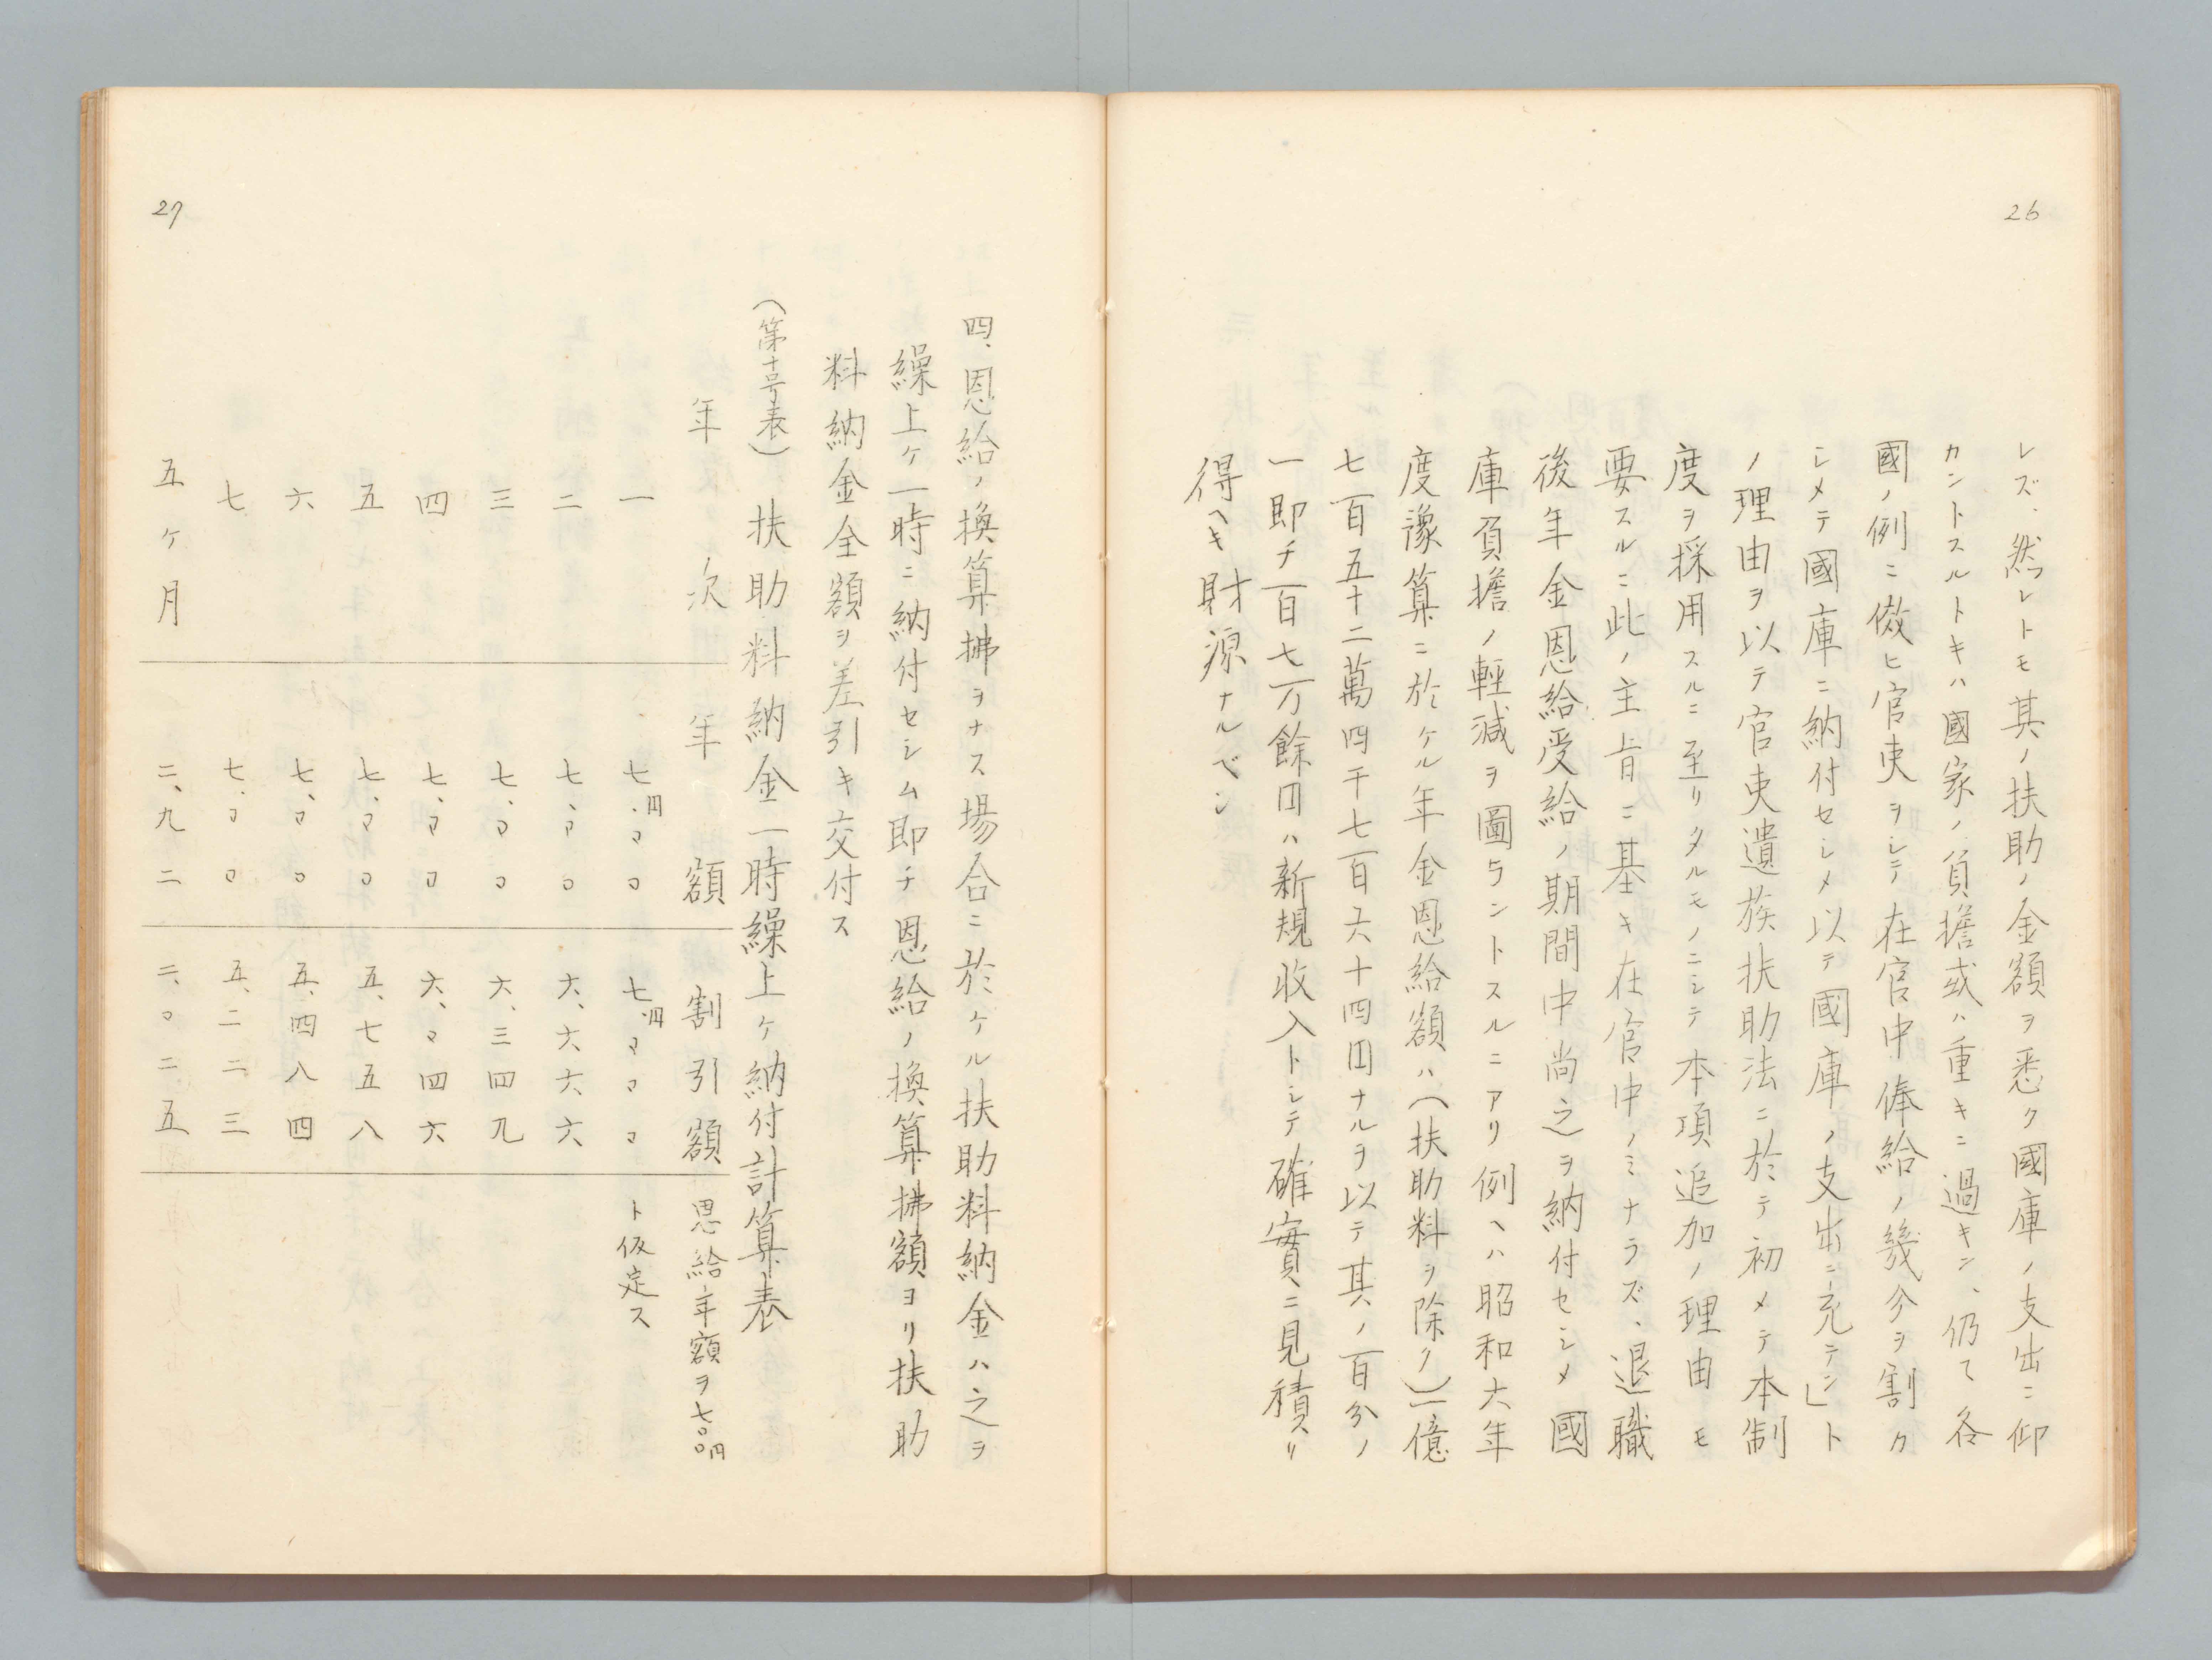 26
レズ、然レトモ其ノ扶助ノ金額ヲ悉ク國庫ノ支出ニ仰
カントスルトキハ國家ノ負擔或ハ重キニ過キン、仍て各
國ノ例ニ倣ヒ官吏ヲシテ在官中俸給ノ幾分ヲ割ク
シメテ國庫ニ納付セシメ以テ國庫ノ支出ニ充テン」ト
ノ理由ヲ以テ官吏遺族扶助法ニ於テ初メテ本制
度ヲ採用スルニ至リタルモノニシテ本項追加ノ理由モ
要スルニ此ノ主旨ニ基キ在官中ノミナラズ、退職
後年金恩給受給ノ期間中尚之ヲ納付セシメ國
庫負擔ノ輕減ヲ圖ラントスルニアリ例ヘハ昭和六年
度豫算ニ於ケル年金恩給額ハ(扶助料ヲ除ク)一億
七百五十二萬四千七百六十四円ナルヲ以テ其ノ百分ノ
一即チ百七万餘円ハ新規收入トシテ確實ニ見積リ
得ヘキ財源ナルベシ
27
四、恩給ノ換算拂ヲナス場合ニ於ケル扶助料納金ハ之ヲ
繰上ケ一時ニ納付セシム即チ恩給ノ換算拂額ヨリ扶助
料納金全額ヲ差引キ交付ス
(第十号表) 扶助料納金一時繰上ケ納付計算表
年次 年額 割引額 恩給年額ヲ七〇〇円
一 七円、〇〇 七円、〇〇〇 ト仮定ス
二 七、〇〇 六、六六六
三 七、〇〇 六、三四九
四 七、〇〇 六、〇四六
五 七、〇〇 五、七五八
六 七、〇〇 五、四八四
七 七、〇〇 五、二二三
五ヶ月 二、九二 二、〇二五